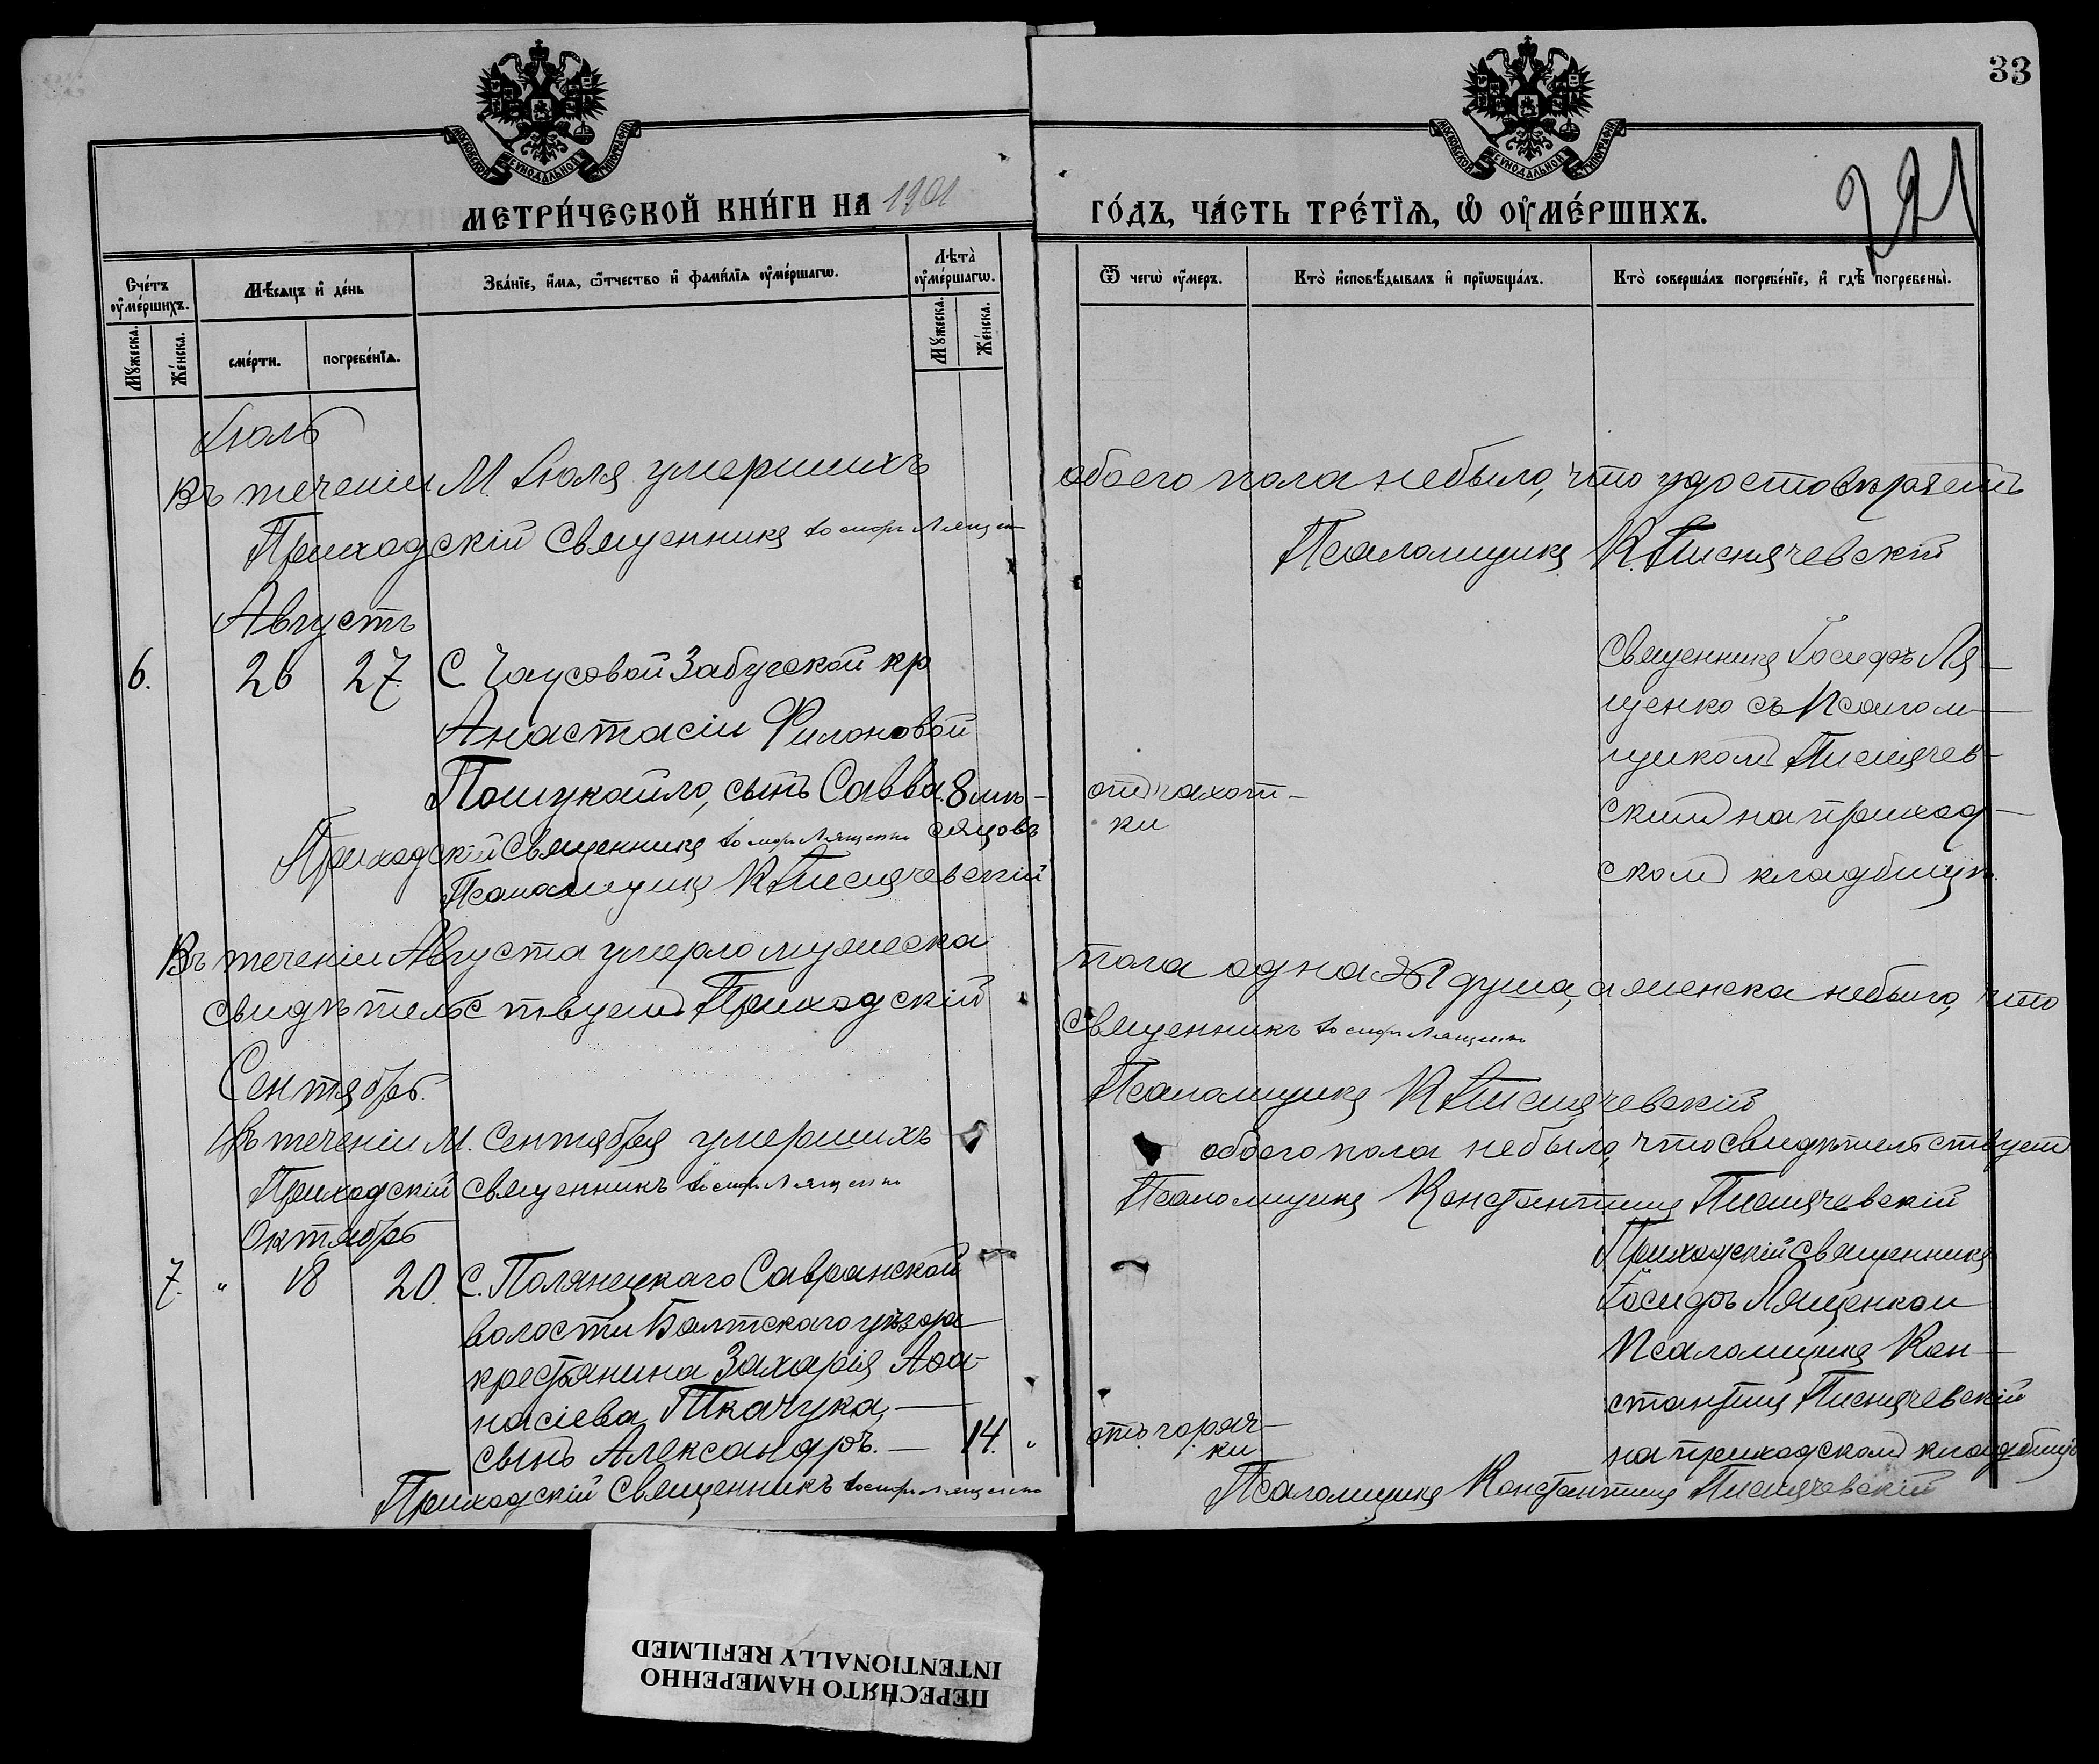 33
МОСКОВСКОЙ СѴНОДАЛЬНОЙ ТИПОГРАФІИ
МОСКОВСКОЙ СѴНОДАЛЬНОЙ ТИПОГРАФІИ
МЕТРИ́ЧЕСКОЙ КНИ́ГИ НА 1901
ГО́ДЪ, ЧА́СТЬ ТРЕ́ТЇѦ, Ѡ҆ ОУ҆МЕ́РШИХЪ.
221
Сче́тъ оу҆ме́ршихъ.
Мꙋ́жеска.
Же́нска.
Мѣ́сѧцъ и҆ де́нь
сме́рти.
погребе́нїѧ.
Зва́нїе, и҆́мѧ, ѻ҆́тчество и҆ фамѝлїѧ оу҆ме́ршагѡ.
Лѣта̀ оу҆ме́ршагѡ.
Мꙋ́жеска.
Же́нска.
Ѿ чегѡ̀ оу҆́меръ.
Кто̀ и҆сповѣ́дывалъ и҆ прїѡбща́лъ.
Кто̀ соверша́лъ погребе́нїе, и҆ гдѣ̀ погребены̀.
Іюль
Въ теченіи М. Іюля умершихъ обоего пола небыло, что удостовѣряемъ
Приходскій Священникъ Іосифъ Лященко
Псаломщикъ К. Писнячевскій
Августъ
6. 26 27. С. Чаусовой Забугской кр
Анастасіи Филоновой
Пошукайло, сынъ Савва. 8 мѣ-
сяцовъ
отъ чахот-
ки
Священникъ Іосифъ Ля-
щенко съ Псалом-
щикомъ Писнячев-
скимъ на приход-
скомъ кладбищѣ.
Приходскій Священникъ Іосифъ Лященко
Псаломщикъ К. Писнячевскій
Въ теченіи Августа умерло мужеска пола одна душа, а женска небыло, что
свидѣтельствуемъ Приходскій Священникъ Іосифъ Лященко
Псаломщикъ К. Писнячевскій
Сентябрь.
Въ теченіи М. Сентября умершихъ обоего пола небыло, что свидѣтельствуемъ
Приходскій Священникъ Іосифъ Лященко
Псаломщикъ Константинъ Писнячевскій
Октябрь
7. „ 18 20. С. Полянецкаго Савранской
волости Балтскаго уѣзда
крестьянина Захарія Аѳа-
насіева Ткачука,
сынъ Александръ. 14. „
отъ горяч-
ки
Приходскій Священникъ
Іосифъ Лященко и
Псаломщикъ Кон-
стантинъ Писнячевскій
на приходскомъ кладбищѣ
Приходскій Священникъ Іосифъ Лященко
Псаломщикъ Константинъ Писнячевскій
ПЕРЕСНЯТО НАМЕРЕННО
INTENTIONALLY REFILMED